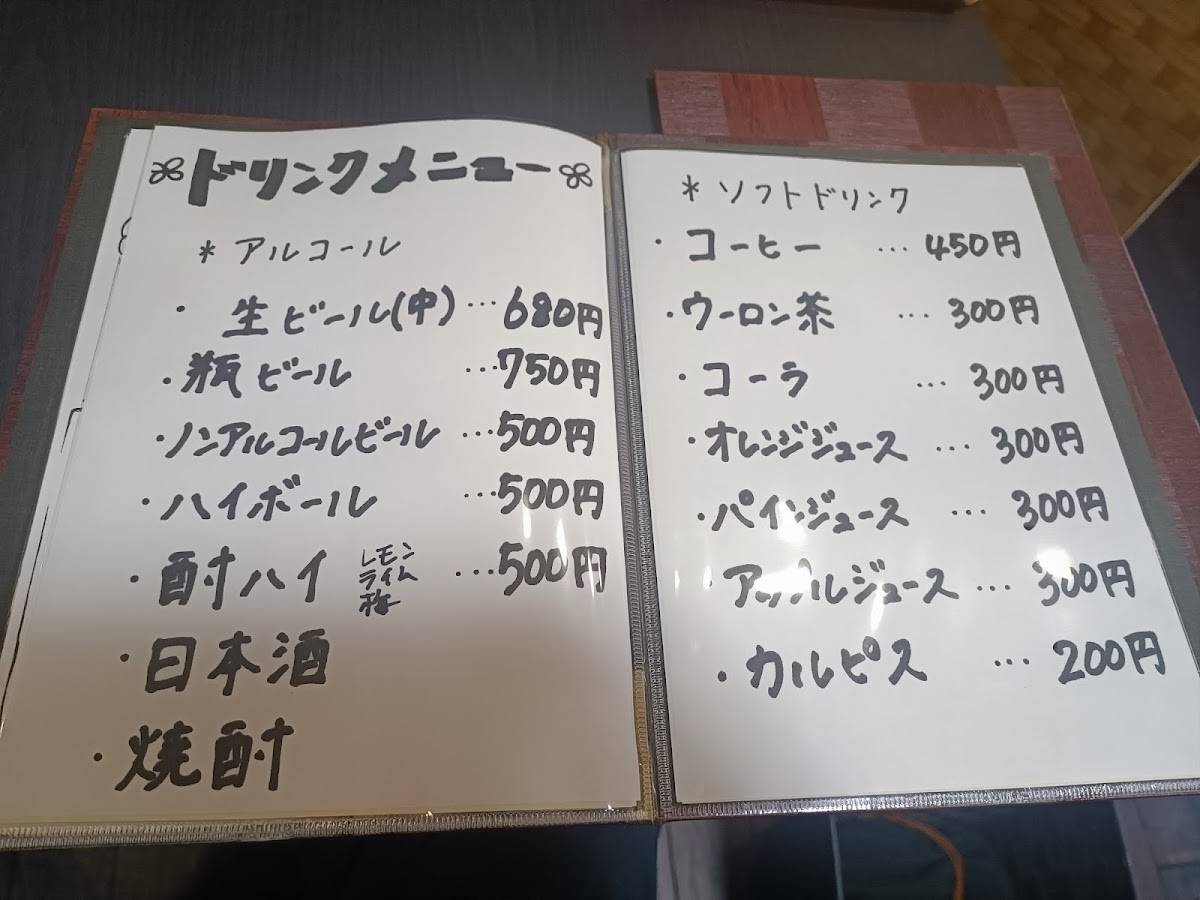 ドリンクメニュー
* アルコール
・生ビール(中) …680円
・瓶ビール …750円
・ノンアルコールビール …500円
・ハイボール …500円
・酎ハイ レモン ライム 梅 …500円
・日本酒
・焼酎
* ソフトドリンク
・コーヒー …450円
・ウーロン茶 …300円
・コーラ …300円
・オレンジジュース …300円
・パインジュース …300円
・アップルジュース …300円
・カルピス …200円